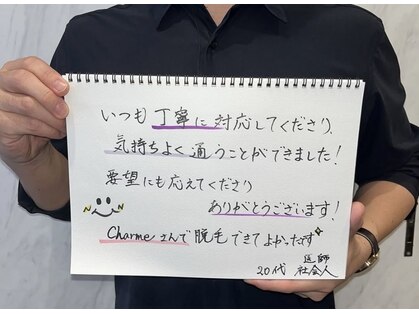 いつも丁寧に対応してくださり、
気持ちよく通うことができました!
要望にも応えてくださり
ありがとうございます!
Charmeさんで脱毛できてよかったです
医師
20代 社会人